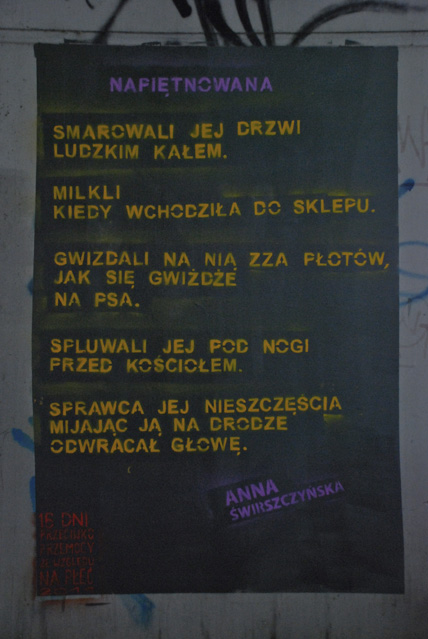 NAPIĘTNOWANA
SMAROWALI JEJ DRZWI
LUDZKIM KAŁEM.
MILKLI
KIEDY WCHODZIŁA DO SKLEPU.
GWIZDALI NA NIĄ ZZA PŁOTÓW,
JAK SIĘ GWIŻDŻE
NA PSA.
SPLUWALI JEJ POD NOGI
PRZED KOŚCIOŁEM.
SPRAWCA JEJ NIESZCZĘŚCIA
MIJAJĄC JĄ NA DRODZE
ODWRACAŁ GŁOWĘ.
ANNA
ŚWIRSZCZYŃSKA
16 DNI
PRZECIWKO
PRZEMOCY
ZE WZGLĘDU
NA PŁEĆ